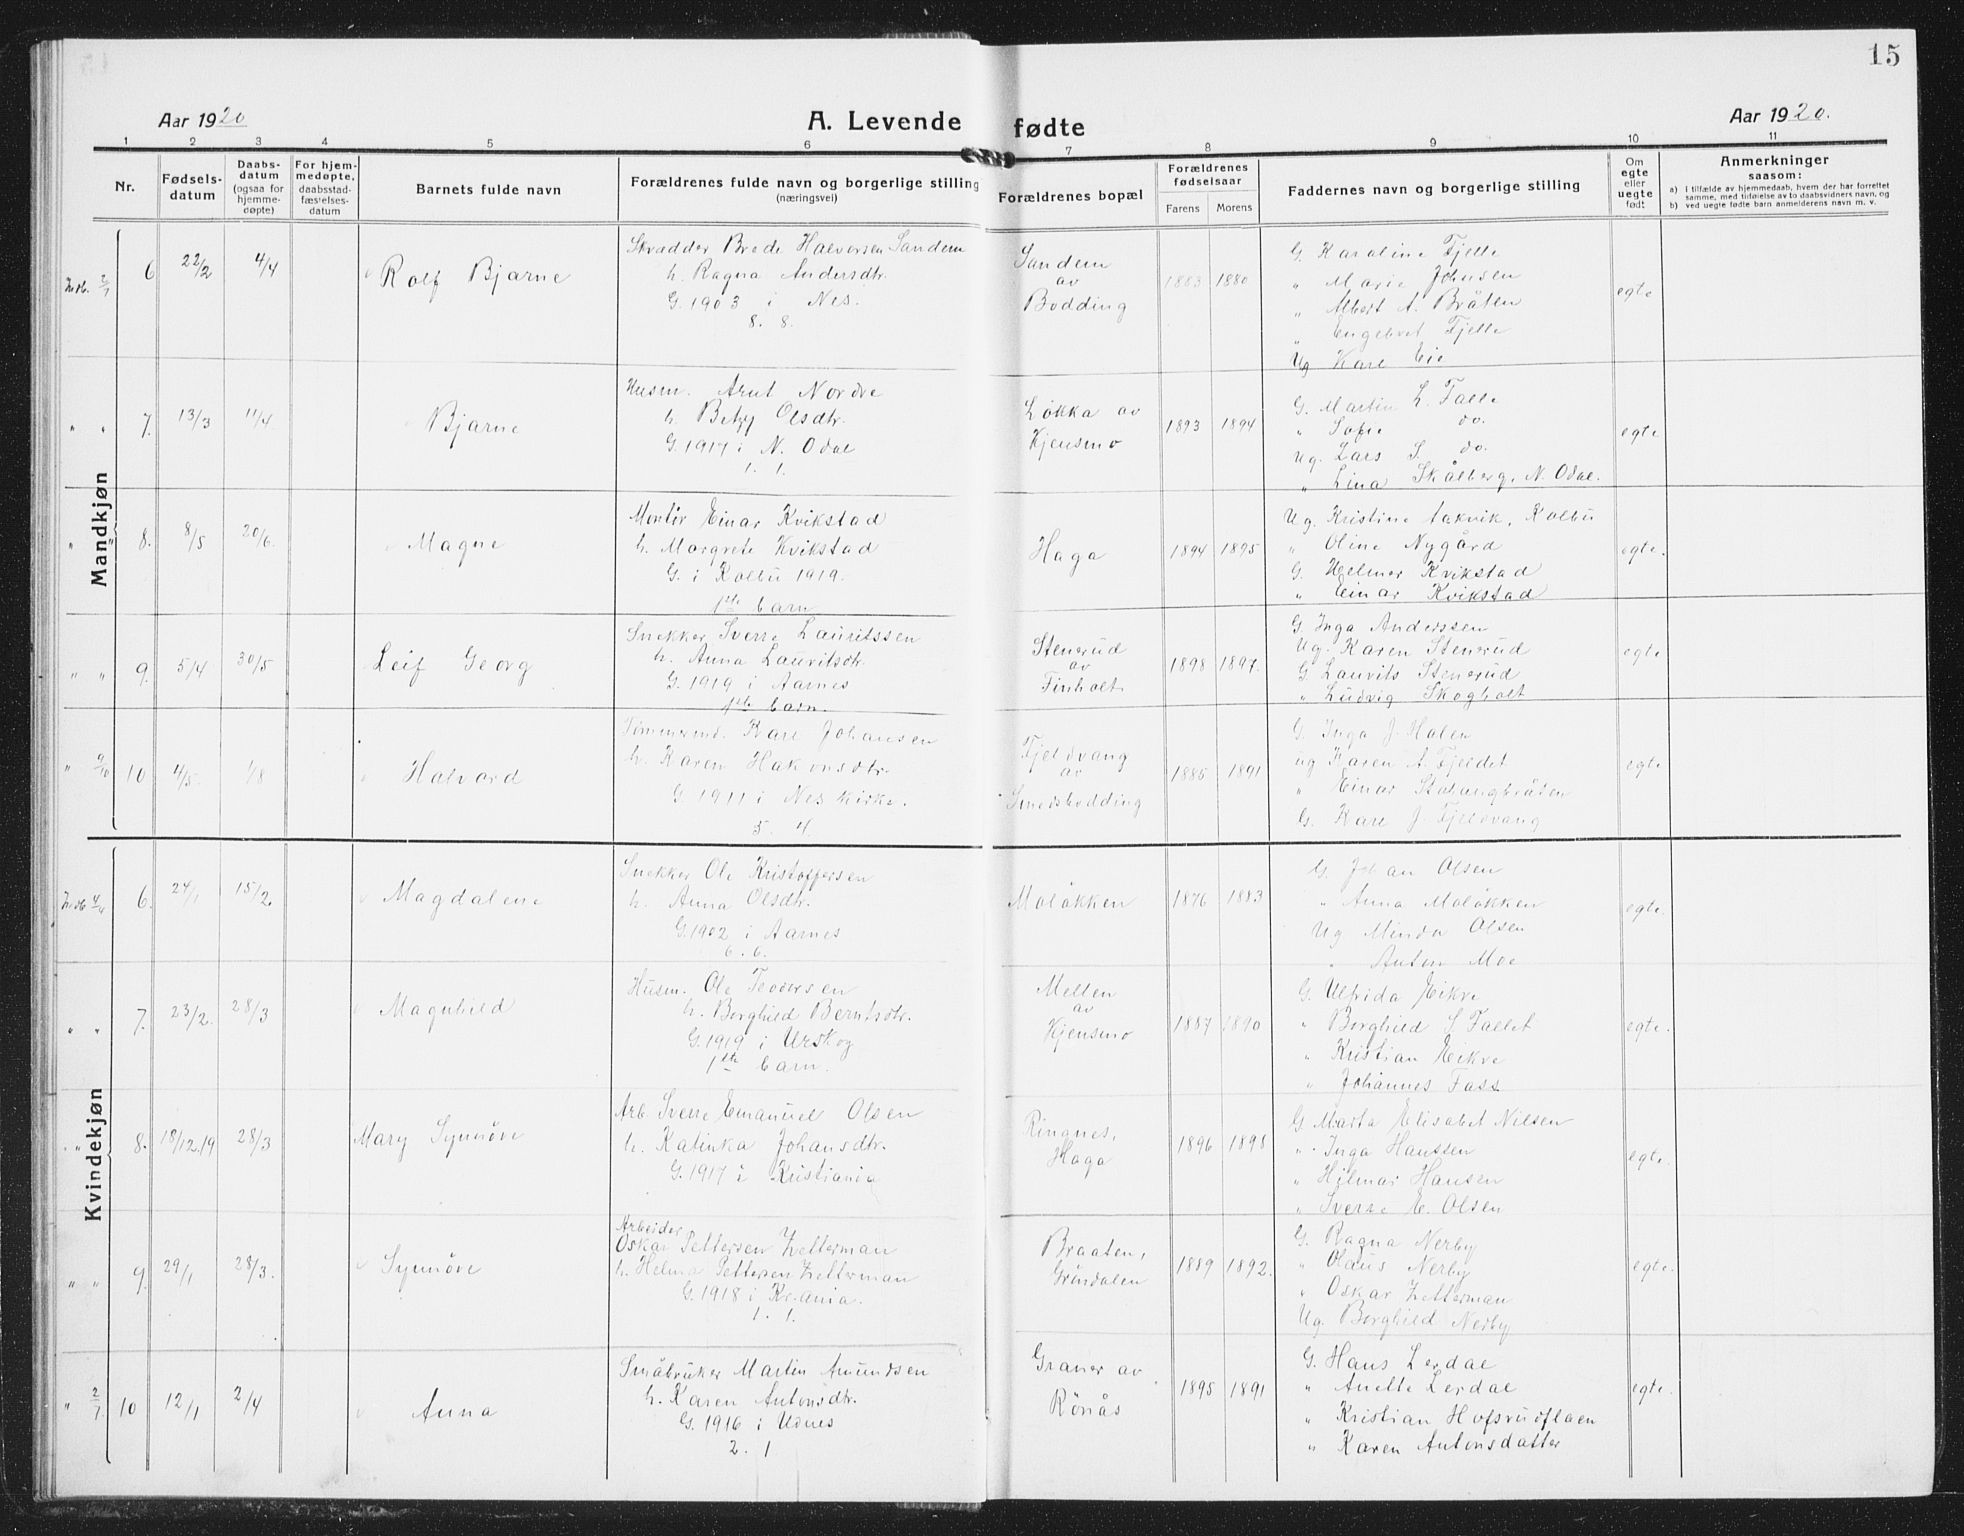 15
Aar 1920
A. Levende fødte
Aar 1920.
1 2 3 4 5 6 7 8 9 10 11
Nr.
Fødsels-
datum
Daabs-
datum
(ogsaa for
hjemme-
døpte)
For hjem-
medøpte,
daabsstad-
fæstelses-
datum
Barnets fulde navn
Forældrenes fulde navn og borgerlige stilling
(næringsvei)
Forældrenes bopæl
Forældrenes
fødselsaar
Farens Morens
Faddernes navn og borgerlige stilling
Om
egte
eller
uegte
født
Anmerkninger
saasom:
a) i tilfælde av hjemmedaab, hvem der har forrettet
samme, med tilføielse av to daabsvidners navn, og
b) ved uegte fødte barn anmelderens navn m. v.
Mandkjøn
6 22/2 4/4 Rolf Bjarne
Skrædder Brede Halvorsen Sandem
h. Ragna Andersdtr.
G. 1903 i Nes.
8. 8.
Sandem
av
Bodding
1883 1880
G. Karoline Fjelle
" Marie Johnsen
" Albert A. Bråten
" Engebret Fjelle
Ug Kare Eie
egte
" " 7. 13/3 11/4 Bjarne
Husm. Arnt Nordre
h. Betzy Olsdtr.
G. 1917 i N. Odal
1. 1.
Løkka av
Kjensmo
1893 1894
G. Martin L. Falle
" Sofie do.
Ug. Lars S. do.
" Lina Skålberg, N. Odal.
egte
" " 8. 8/5 20/6. Magne
Montør Einar Kvikstad
h. Margrete Kvikstad
G. i Kolbu 1919.
1ste barn
Haga
1894 1895
Ug. Kristine Kolbu
" Oline Nygård
G. Helmer Kvikstad
" Einar Kvikstad
egte.
" " 9. 5/4 30/5 Leif Georg
Snekker Sverre Lauritssen
h. Anna Lauritsdtr.
G. 1919 i Aarnes
1ste barn.
Stenerud
av
Finholt
1898 1897.
G Inga Anderssen
Ug. Karen Stenerud
G. Laurits Stenerud
" Ludvig Skogholt
egte
" 9/10 10 4/5. 1/8 Halvard
Tømmerm. Kare Johansen
h. Karen Hakonsdtr.
G. 1911 i Nes kirke.
5. 4.
Fjeldvang
av
Smedsbodding
1885 1891
G. Inga J. Holen
ug Karen A. Fjeldet
" Einar
G. Kare J. Fjeldvang
egte
Kvindekjøn
6. 24/1 15/2. Magdalene
Snekker Ole Kristoffersen
h. Anna Olsdtr.
G. 1902 i Aarnes
6. 6.
Moløkken
1876 1883
G. Johan Olsen
" Anna Moløkken
Ug Minda Olsen
" Anton Moe
egte.
" " 7. 23/2. 28/3 Magnhild
Husm. Ole Teodorsen
h. Borghild Berntsdtr.
G. 1919 i Urskog
1ste barn.
Melten
av
Kjensmo
1887 1890
G. Ulfrida Eikre
" Borghild S. Fallet
" Kristian Eikre
" Johannes Fass
egte.
" " 8. 18/12.19 28/3 Mary Synnøve
Arb. Sverre Emanuel Olsen
h. Katinka Johansdtr.
G. 1917 i Kristiania
Ringnes,
Haga
1896 1898
G Marta Elisabet Nilsen
" Inga Hanssen
" Hilmar Hansen
" Sverre E. Olsen
egte.
" " 9. 29/1 28/3. Synnøve
Arbeider
Oskar Pettersen Zetterman
h. Helma Pettersen Zetterman
G. 1918 i Kr.ania.
1. 1.
Braaten,
Grøndalen
1889 1892.
G. Ragna Nerby
" Olaus Nerby
" Oskar Zetterman
Ug. Borghild Nerby
egte.
" 2/7 10 12/1 2/4 Anna
Småbruker Martin Amundsen
h. Karen Antonsdtr.
G. 1916 i Udnes
2. 1
Graner av
Rönås
1895 1891
G. Hans Lerdal
" Anette Lerdal
" Kristian Hofsrudflaen
" Karen Antonsdatter
egte.